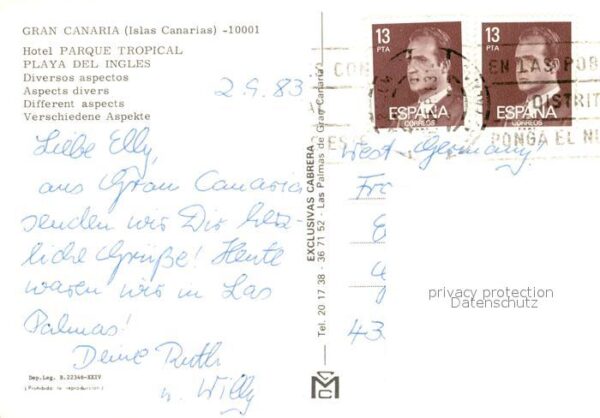 GRAN CANARIA (Islas Canarias) -10001
Hotel PARQUE TROPICAL
PLAYA DEL INGLES
Diversos aspectos
Aspects divers
Different aspects
Verschiedene Aspekte
2.9.83
Liebe Elly,
aus Gran Canaria
senden wir Dir herz-
liche Grüße! Heute
waren wir in Las
Palmas!
Deine Ruth
u. Willy
Dep. Leg. B. 22346-XXIV
(Prohibida la reproducción)
EXCLUSIVAS CABRERA
Tel. 20 17 38 - 36 71 52 - Las Palmas de Gran Canaria
13
PTA
ESPAÑA
CORREOS
13
PTA
ESPAÑA
CORREOS
CON
EN LAS POB
DISTRIT
ESTE
PONGA EL N
West-Germany!
Fr
43
privacy protection
Datenschutz